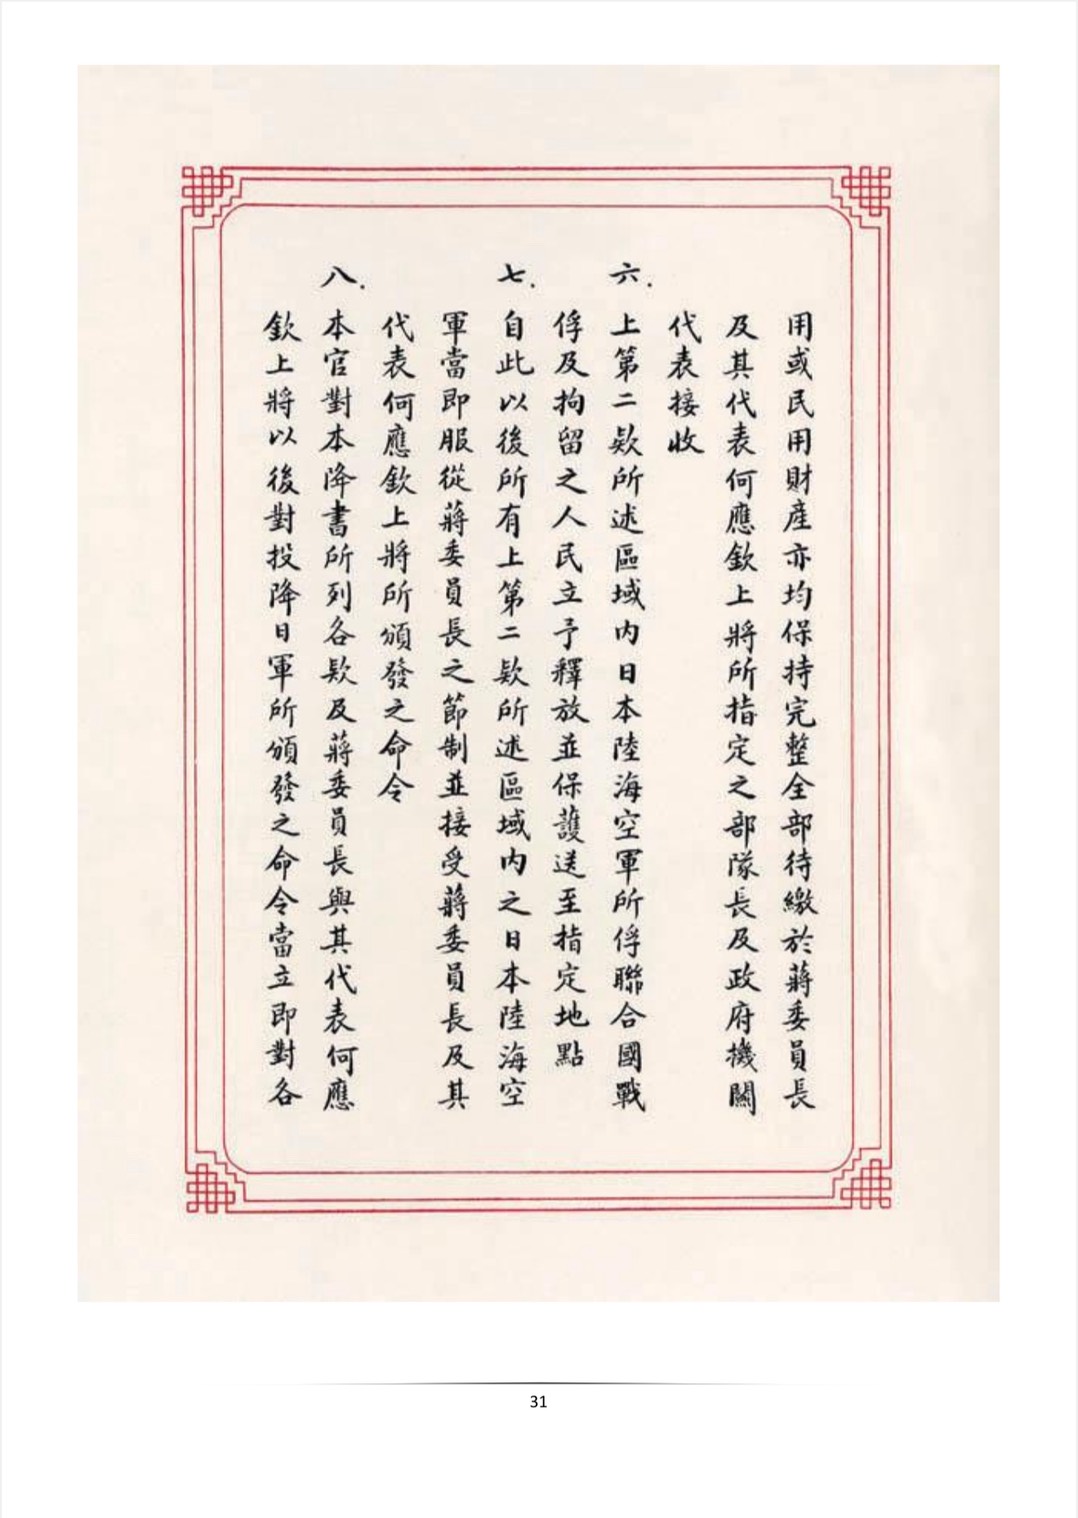 用或民用財產亦均保持完整全部待繳於蔣委員長
及其代表何應欽上將所指定之部隊長及政府機關
代表接收
六.上第二欵所述區域內日本陸海空軍所俘聯合國戰
俘及拘留之人民立予釋放並保護送至指定地點
七.自此以後所有上第二欵所述區域內之日本陸海空
軍當即服從蔣委員長之節制並接受蔣委員長及其
代表何應欽上將所頒發之命令
八.本官對本降書所列各欵及蔣委員長與其代表何應
欽上將以後對投降日軍所頒發之命令當立即對各
31